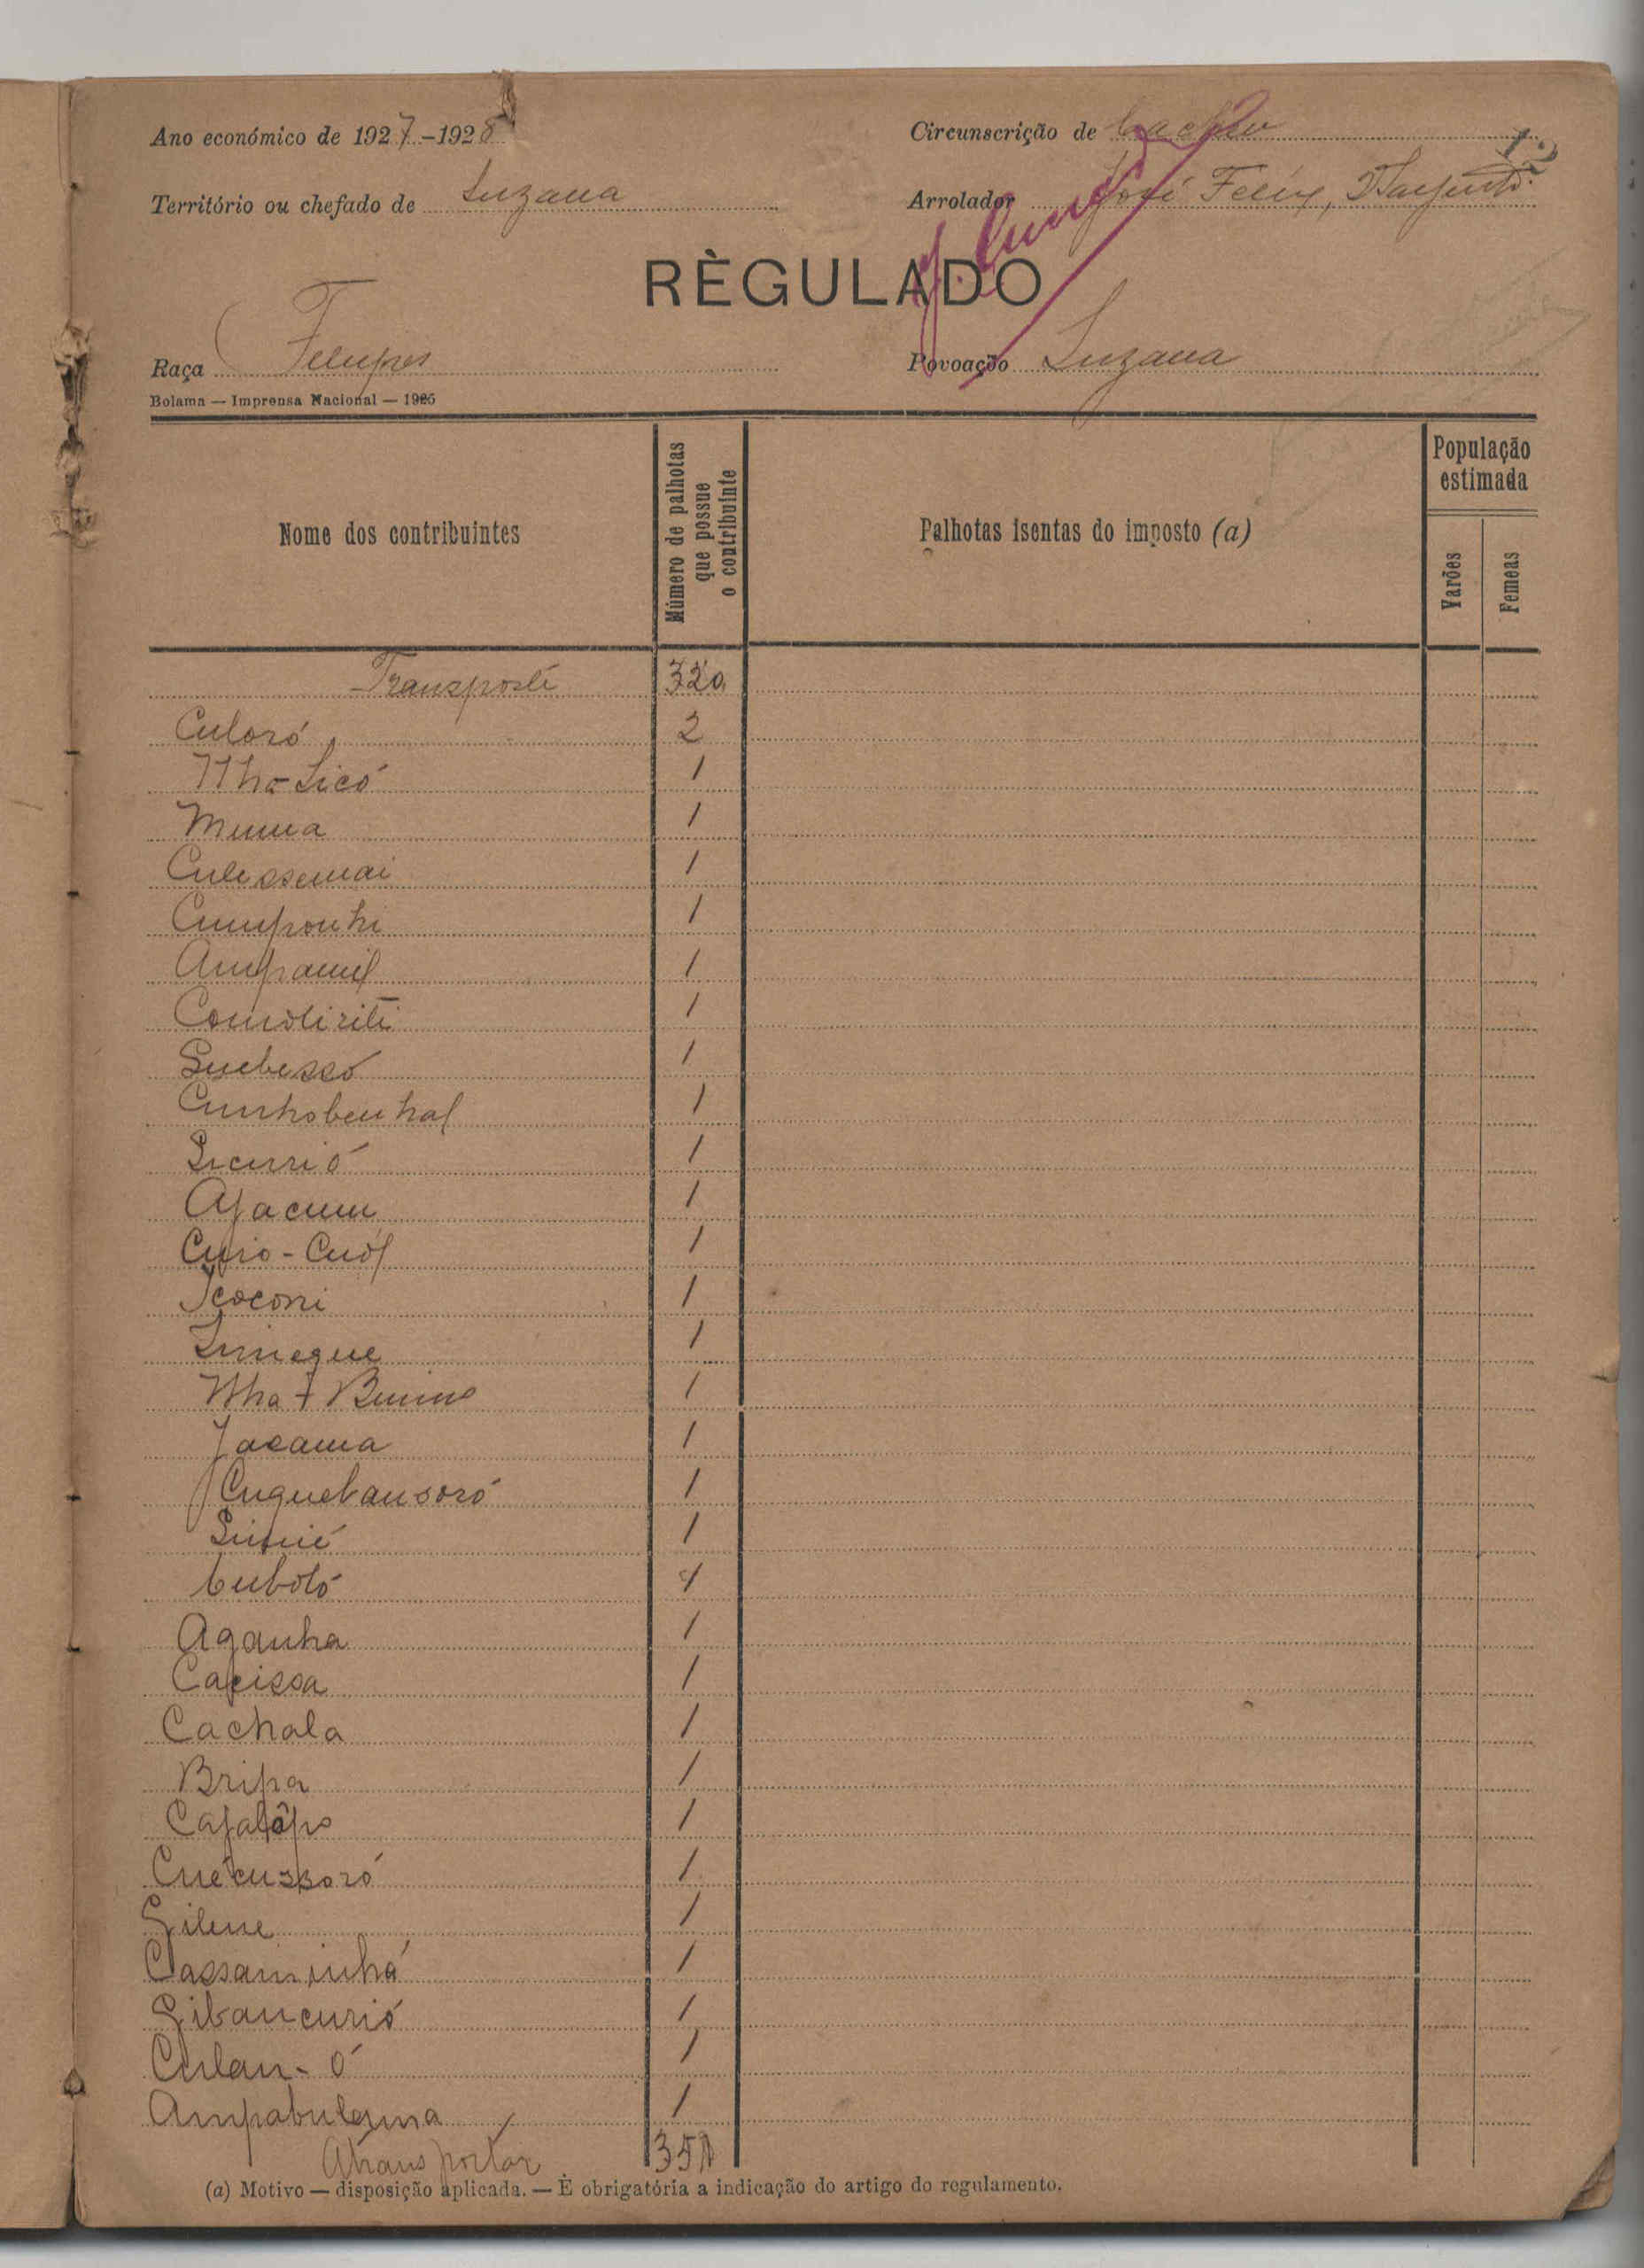 Ano económico de 1927-1928 Circunscrição de Cacheu
12
Território ou chefado de Suzana Arrolador José Felix, Sargento
RÈGULADO
Raça Felupes Povoação Suzana
Bolama — Imprensa Nacional — 1925
Nome dos contribuintes
Número de palhotas que possue o contribuinte
Palhotas isentas do imposto (a)
População estimada
Varões
Femeas
Transporte 320
Culoró 2
Nha-Sicó 1
Mumua 1
Culessemai 1
Cumponhi 1
Ampamil 1
1
Suebessó 1
Cunhobenhal 1
Sicurrió 1
Ajacum 1
1
1
1
Nha 1
Jacama 1
Cuquebansoró 1
1
Cubotó 1
Aganha 1
Capissa 1
Cachala 1
Bripa 1
Cajalôpo 1
Cuécussoró 1
Silene 1
Cassaminhá 1
Sibancurió 1
Culan-ó 1
Ampabuloma 1
A transportar 351
(a) Motivo — disposição aplicada. — É obrigatória a indicação do artigo do regulamento.